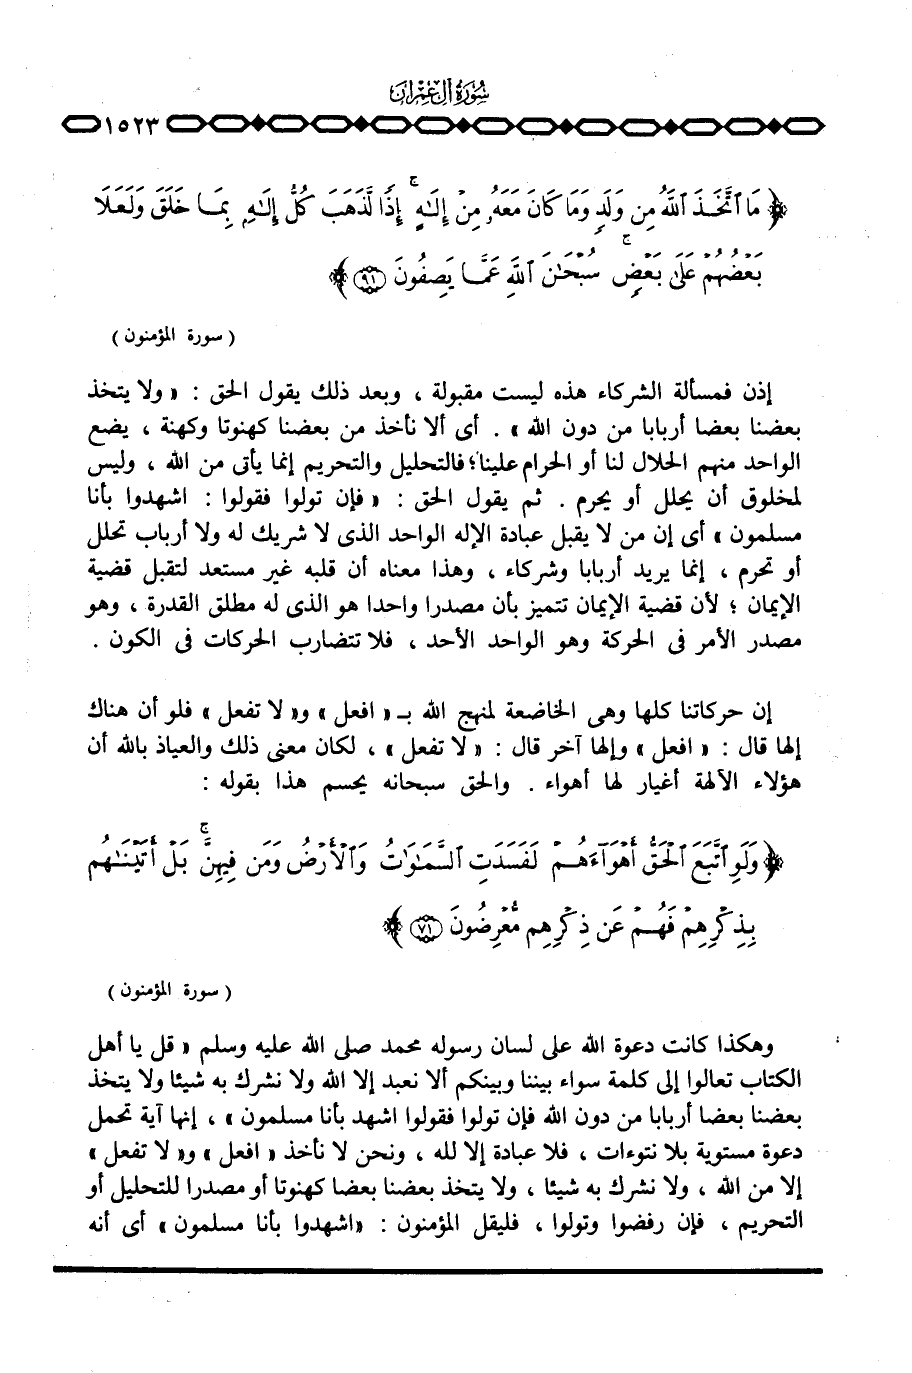 سُورَةُ آلِ عِمْرَانَ
١٥٢٣
﴿ مَا ٱتَّخَذَ ٱللَّهُ مِن وَلَدٍ وَمَا كَانَ مَعَهُۥ مِنْ إِلَٰهٍ ۚ إِذًا لَّذَهَبَ كُلُّ إِلَٰهٍۭ بِمَا خَلَقَ وَلَعَلَا
بَعْضُهُمْ عَلَىٰ بَعْضٍ ۚ سُبْحَٰنَ ٱللَّهِ عَمَّا يَصِفُونَ ٩١ ﴾
( سورة المؤمنون )
إذن فمسألة الشركاء هذه ليست مقبولة ، وبعد ذلك يقول الحق : « ولا يتخذ
بعضنا بعضا أربابا من دون الله » . أى ألا نأخذ من بعضنا كهنوتا وكهنة ، يضع
الواحد منهم الحلال لنا أو الحرام علينا ؛ فالتحليل والتحريم إنما يأتى من الله ، وليس
لمخلوق أن يحلل أو يحرم . ثم يقول الحق : « فإن تولوا فقولوا : اشهدوا بأنا
مسلمون » أى إن من لا يقبل عبادة الإله الواحد الذى لا شريك له ولا أرباب تحلل
أو تحرم ، إنما يريد أربابا وشركاء ، وهذا معناه أن قلبه غير مستعد لتقبل قضية
الإيمان ؛ لأن قضية الإيمان تتميز بأن مصدرا واحدا هو الذى له مطلق القدرة ، وهو
مصدر الأمر فى الحركة وهو الواحد الأحد ، فلا تتضارب الحركات فى الكون .
إن حركاتنا كلها وهى الخاضعة لمنهج الله بـ « افعل » و« لا تفعل » فلو أن هناك
إلها قال : « افعل » وإلها آخر قال : « لا تفعل » ، لكان معنى ذلك والعياذ بالله أن
هؤلاء الآلهة أغيار لها أهواء . والحق سبحانه يحسم هذا بقوله :
﴿ وَلَوِ ٱتَّبَعَ ٱلْحَقُّ أَهْوَآءَهُمْ لَفَسَدَتِ ٱلسَّمَٰوَٰتُ وَٱلْأَرْضُ وَمَن فِيهِنَّ ۚ بَلْ أَتَيْنَٰهُم
بِذِكْرِهِمْ فَهُمْ عَن ذِكْرِهِم مُّعْرِضُونَ ٧١ ﴾
( سورة المؤمنون )
وهكذا كانت دعوة الله على لسان رسوله محمد صلى الله عليه وسلم « قل يا أهل
الكتاب تعالوا إلى كلمة سواء بيننا وبينكم ألا نعبد إلا الله ولا نشرك به شيئا ولا يتخذ
بعضنا بعضا أربابا من دون الله فإن تولوا فقولوا اشهد بأنا مسلمون » ، إنها آية تحمل
دعوة مستوية بلا نتوءات ، فلا عبادة إلا لله ، ونحن لا نأخذ « افعل » و« لا تفعل »
إلا من الله ، ولا نشرك به شيئا ، ولا يتخذ بعضنا بعضا كهنوتا أو مصدرا للتحليل أو
التحريم ، فإن رفضوا وتولوا ، فليقل المؤمنون : «اشهدوا بأنا مسلمون» أى أنه